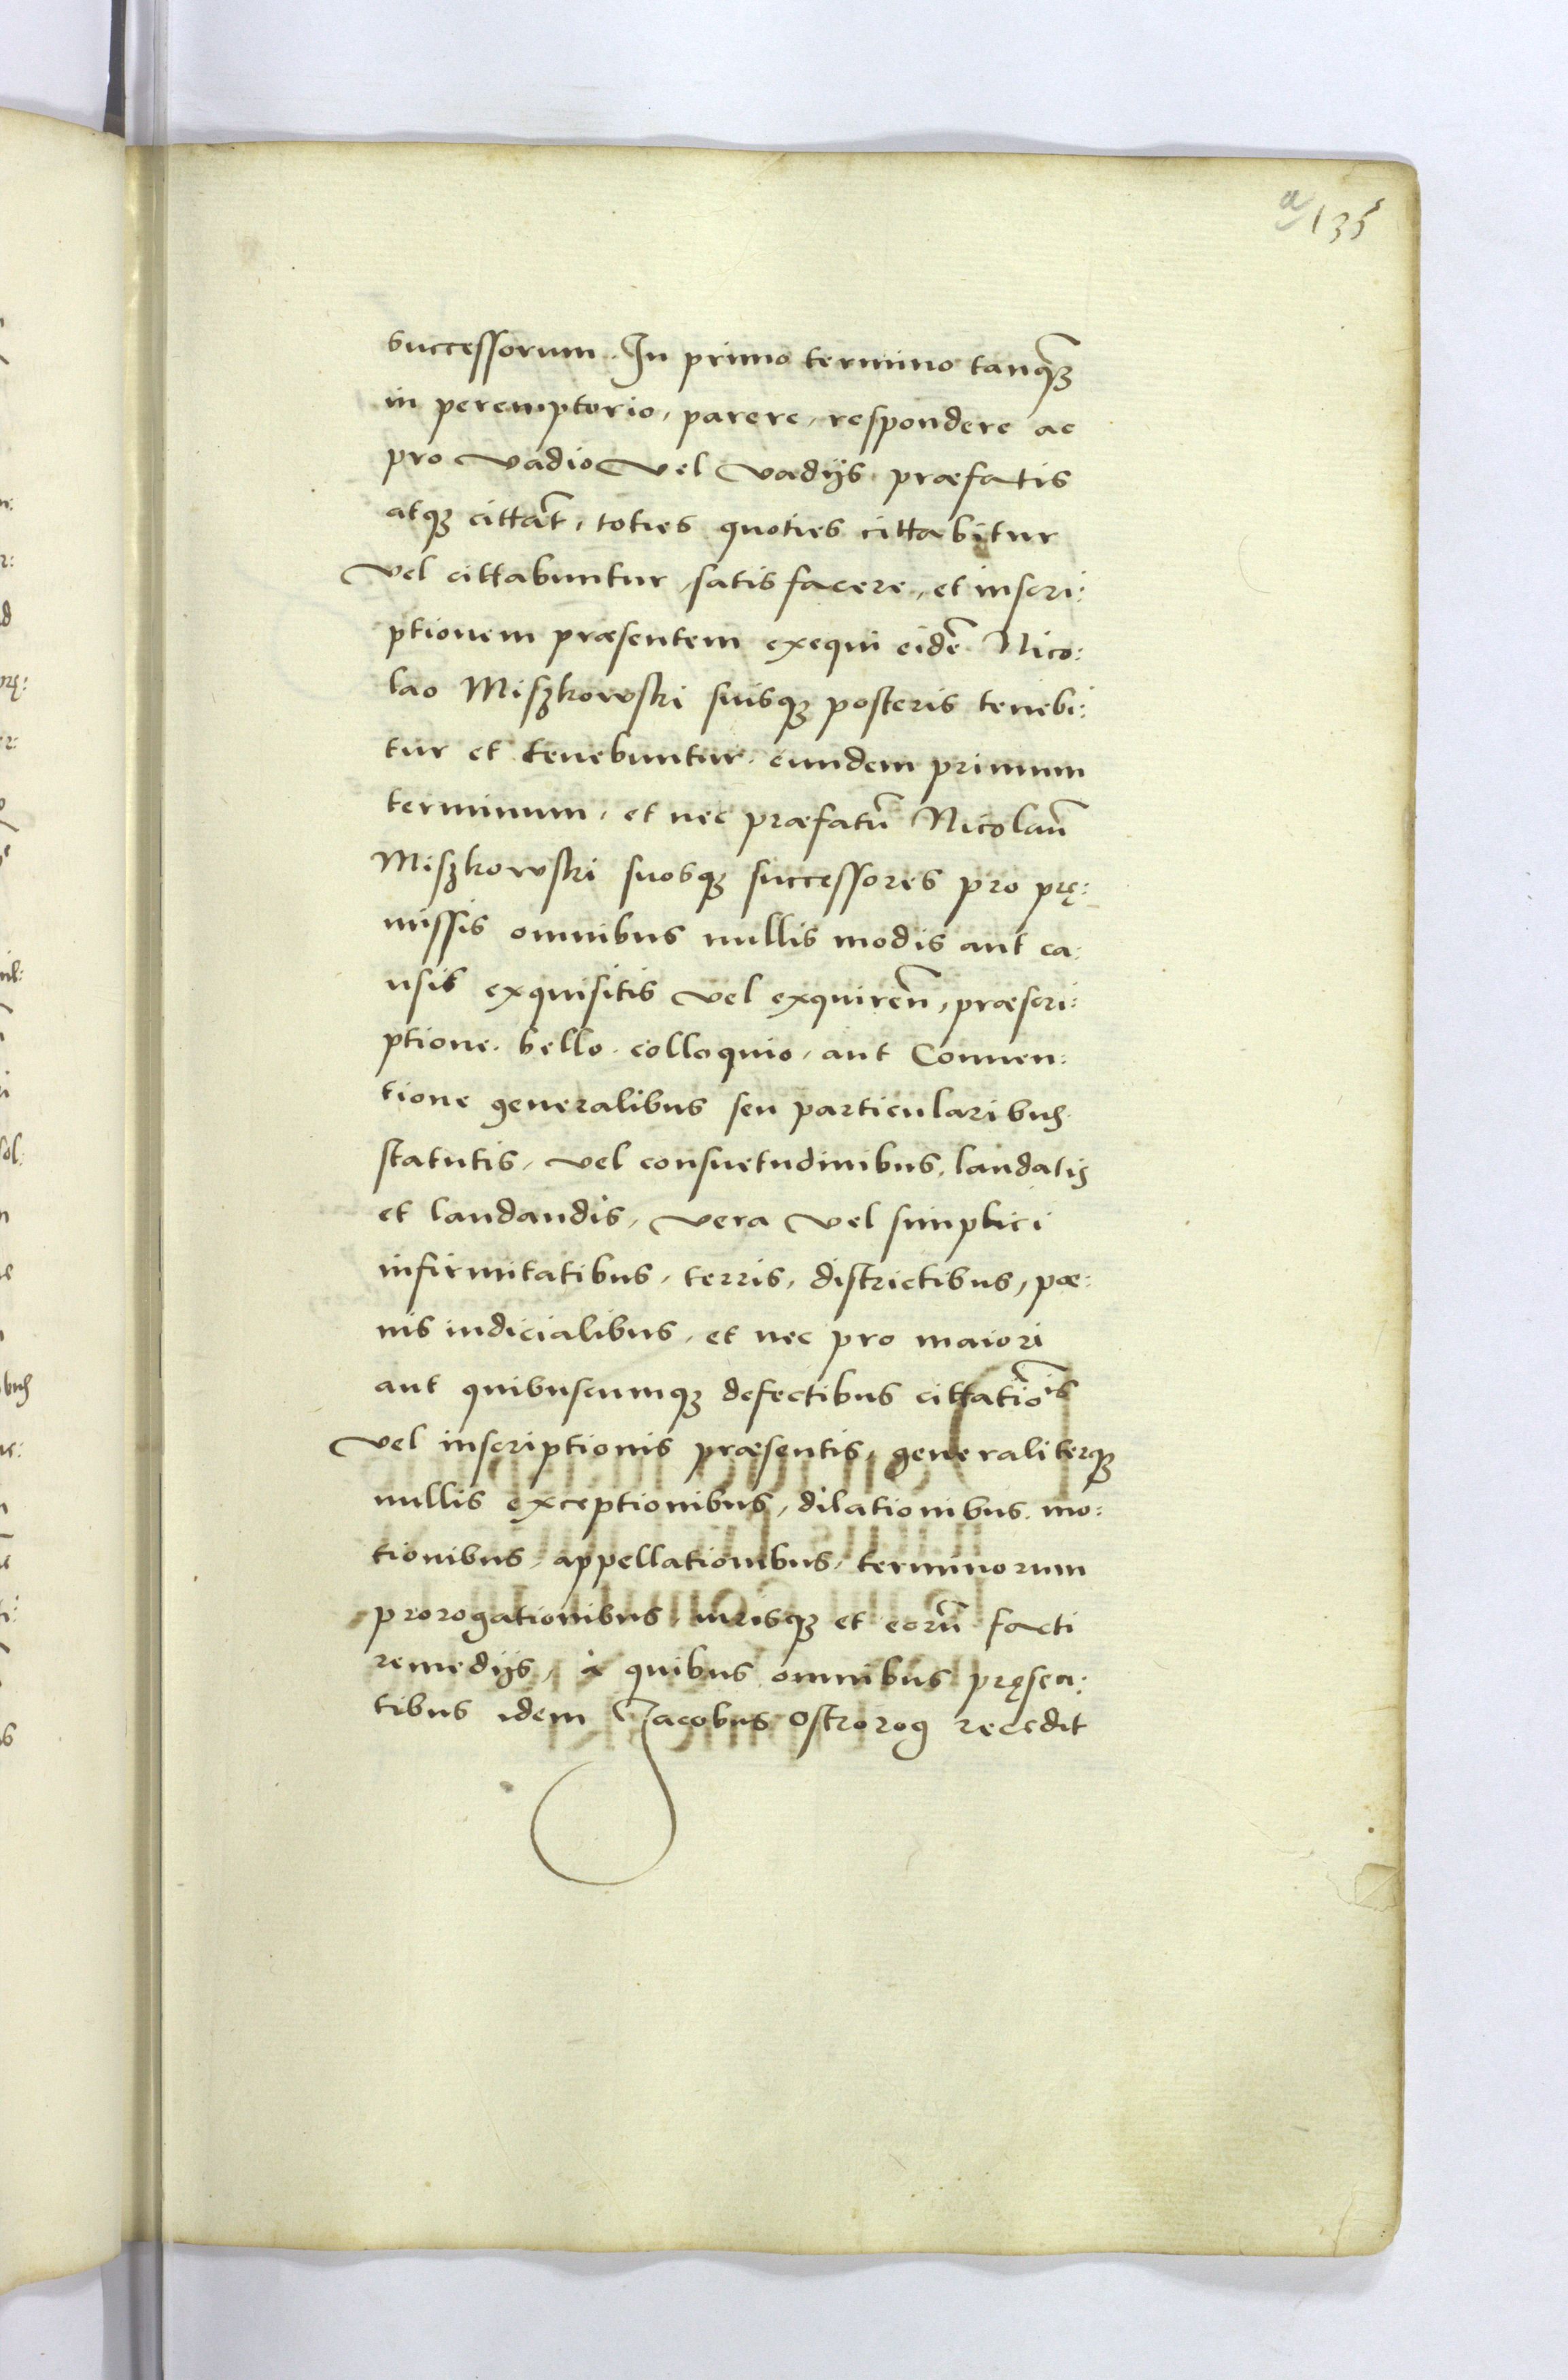 a/135
successorum. In primo termino tanq̃ꝫ
in peremptorio, parere, respondere ac
pro vadio vel vadijs præfatis
atqꝫ cittat̃, toties quoties cittabitur
vel cittabuntur, satis facere, et inscri:
ptionem præsentem exequi eidẽ Nico:
lao Miszkowski suisqꝫ posteris tenebi:
tur et tenebuntur. eundem primum
terminum, et nec præfatũ Nicolaũ
Miszkowski suosqꝫ successores pro prę:
missis omnibus nullis modis aut ca:
usis exquisitis vel exquireñ, præscri:
ptione. bello. colloquio, aut Conuen:
tione generalibus seu particularibus
statutis, vel consuetudinibus, laudatis
et laudandis, vera vel simplici
infirmitatibus, terris, districtibus, pæ:
nis iudicialibus, et nec pro maiori
aut quibuscumqꝫ defectibus cittatiõis
vel inscriptionis præsentis, generaliterqꝫ
nullis exceptionibus, dilationibus. mo:
tionibus, appellationibus, terminorum
prorogationibus, iurisqꝫ et eorũ facti
remedijs, à quibus omnibus pręsen:
tibus idem Jacobus Ostrorog recedit